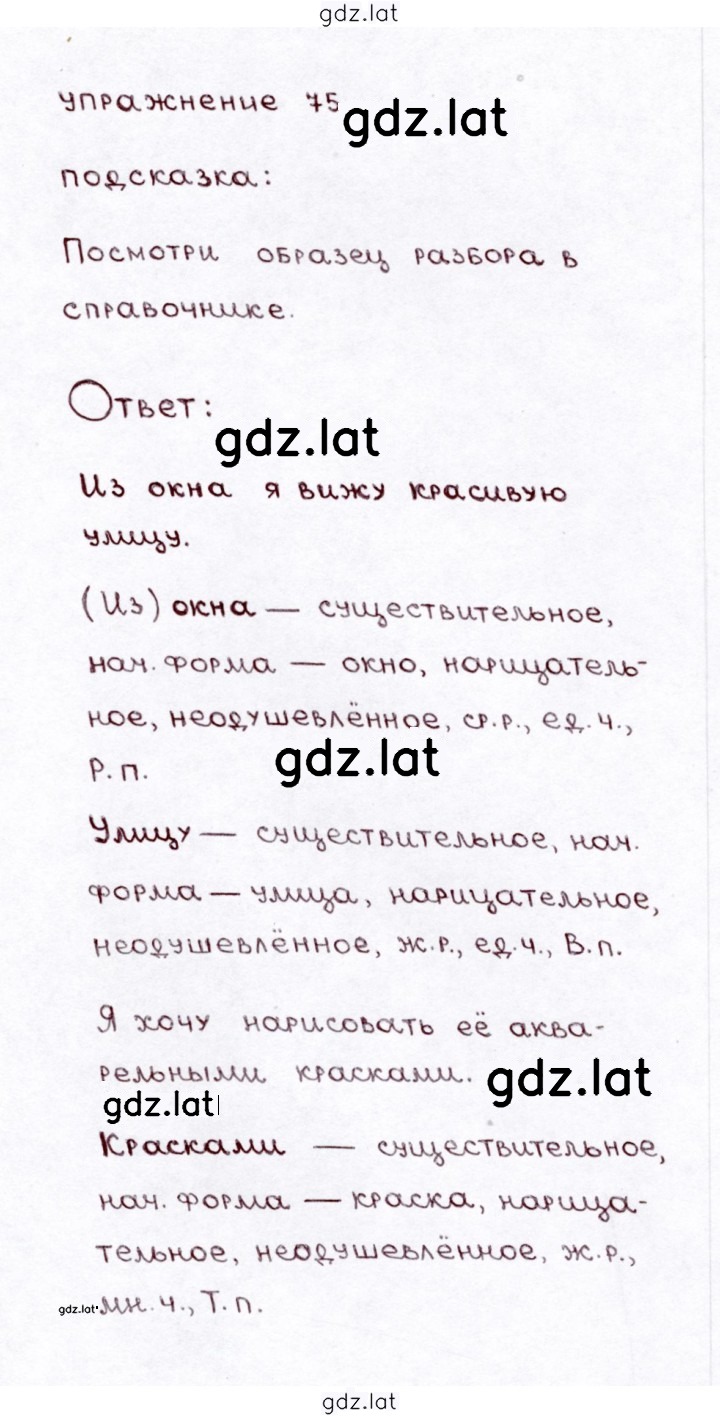 gdz.lat
упражнение 75
gdz.lat
подсказка:
Посмотри образец разбора в
справочнике.
Ответ:
gdz.lat
Из окна я вижу красивую
улицу.
(Из) окна — существительное,
нач. форма — окно, нарицатель-
ное, неодушевлённое, ср.р., ед.ч.,
Р.п.
gdz.lat
Улицу — существительное, нач.
форма — улица, нарицательное,
неодушевлённое, ж.р., ед.ч., В.п.
Я хочу нарисовать её аква-
рельными красками.
gdz.lat
gdz.lat
Красками — существительное,
нач. форма — краска, нарица-
тельное, неодушевлённое, ж.р.,
gdz.lat
мн.ч., Т.п.
gdz.lat